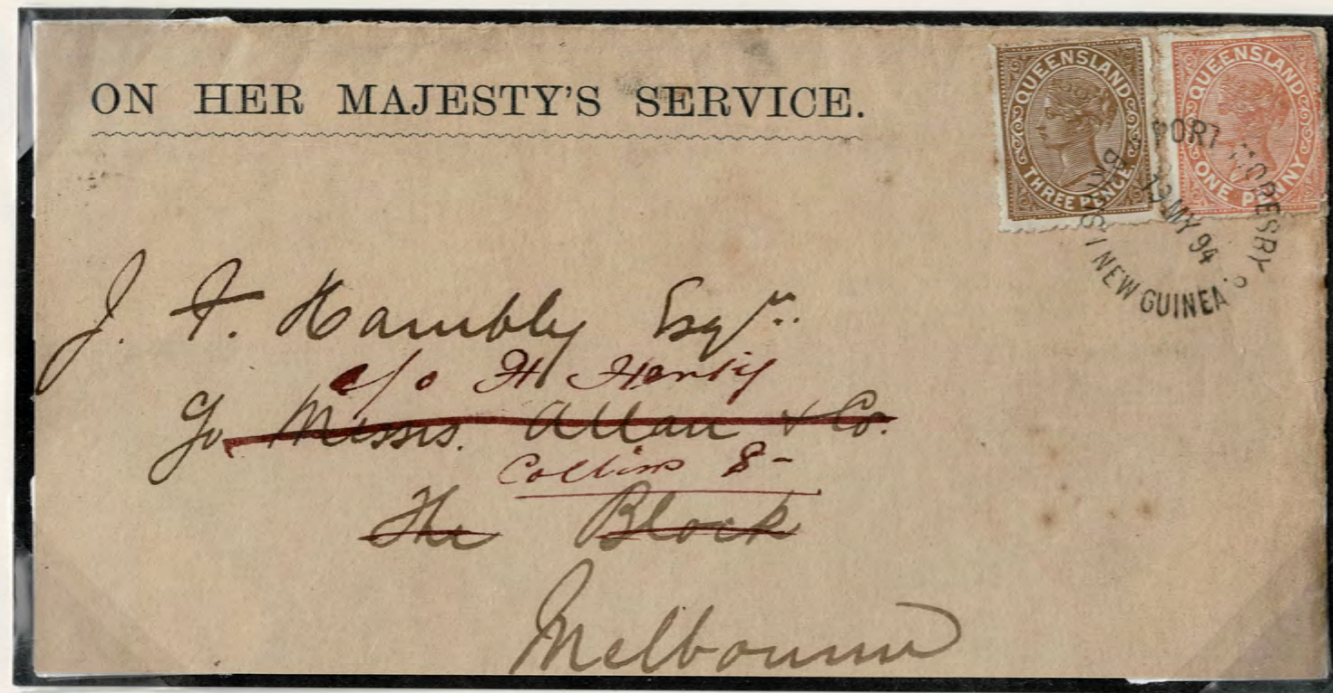 ON HER MAJESTY'S SERVICE.
QUEENSLAND
THREE PENCE
QUEENSLAND
ONE PENNY
PORT MORESBY
MY 94
NEW GUINEA
J. F. Hambly Esqr.
c/o H Henty
c/o Messrs. Allan & Co.
Collins S
The Block
Melbourne